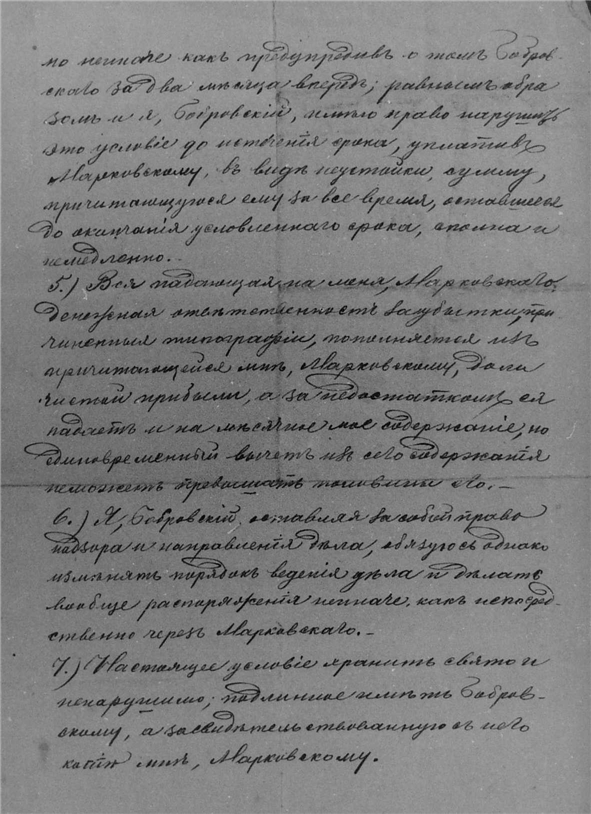 но неиначе какъ предупредивъ о томъ Бобров-
скаго за два мѣсяца впередъ; равнымъ обра
зомъ и я, Бобровскій, имѣю право нарушить
это условіе до истеченія срока, уплативъ
Марковскому, въ видѣ неустойки, сумму,
причитающуюся ему за все время, оставшееся
до окончанія условленнаго срока, сполна и
немедленно.-
5.) Вся падающая на меня, Марковскаго,
денежная отвѣтственность за убытки, при
чиненные типографіи, пополняется изъ
причитающейся мнѣ, Марковскому, доли
чистой прибыли, а за недостаткомъ ея
падаетъ и на мѣсячное мое содержаніе, но
единовременный вычетъ изъ сего содержанія
неможетъ превышать половины его.-
6.) Я, Бобровскій, оставляя за собой право
надзора и направленія дѣла, обязуюсь однако
измѣнять порядокъ веденія дѣла и дѣлать
вообще распоряженія неиначе, какъ непосред-
ственно черезъ Марковскаго.-
7.) Настоящее условіе хранить свято и
ненарушимо; подлинное имѣть Бобров-
скому, а засвидѣтельствованную съ него
копію мнѣ, Марковскому.